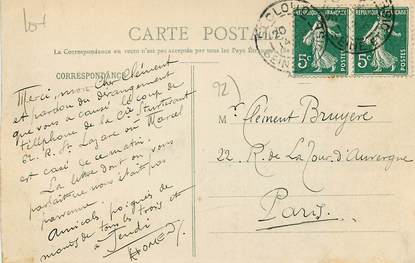 lot
CARTE POSTALE
La Correspondance au recto n'est pas acceptée par tous les Pays Étrangers
CORRESPONDANCE
Merci, mon cher Clément
et pardon du dérangement
que vous a causé le coup de
téléphone de la Cie
62. R. St. Lazare où Marcel
est casé de ce matin.
La lettre dont on vous
parlait ne nous était pas
parvenue.
Amicales poignées de
mains de tous les trois et
à Jeudi
92)
M. r Clément Bruyère
22. R. de La Tour d'Auvergne
Paris.
ST CLOUD
20
14
SEINE
5c
5c